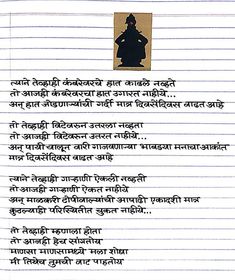 त्याने तेव्हाही कंबरेवरचे हात काढले नव्हते
तो आजही कंबरेवरचा हात उगारत नाहीये...
अन् हात जोडणाऱ्यांची गर्दी मात्र दिवसेंदिवस वाढत आहे
तो तेव्हाही विटेवरून उतरला नव्हता
तो आजही विटेवरून उतरत नाहीये...
अन् पायी चालून वारी गाजवणाऱ्या भावड्या मनाचा आकांत
मात्र दिवसेंदिवस वाढत आहे
त्याने तेव्हाही गाऱ्हाणी ऐकली नव्हती
तो आजही गाऱ्हाणी ऐकत नाहीये
अन् माळकरी टोपीवाल्यांची आषाढी एकादशी मात्र
कुठल्याही परिस्थितीत चुकत नाहीये...
तो तेव्हाही म्हणाला होता
तो आजही हेच सांगतोय
माणसा माणसामध्ये मला शोधा
मी तिथेच तुमची वाट पाहतोय